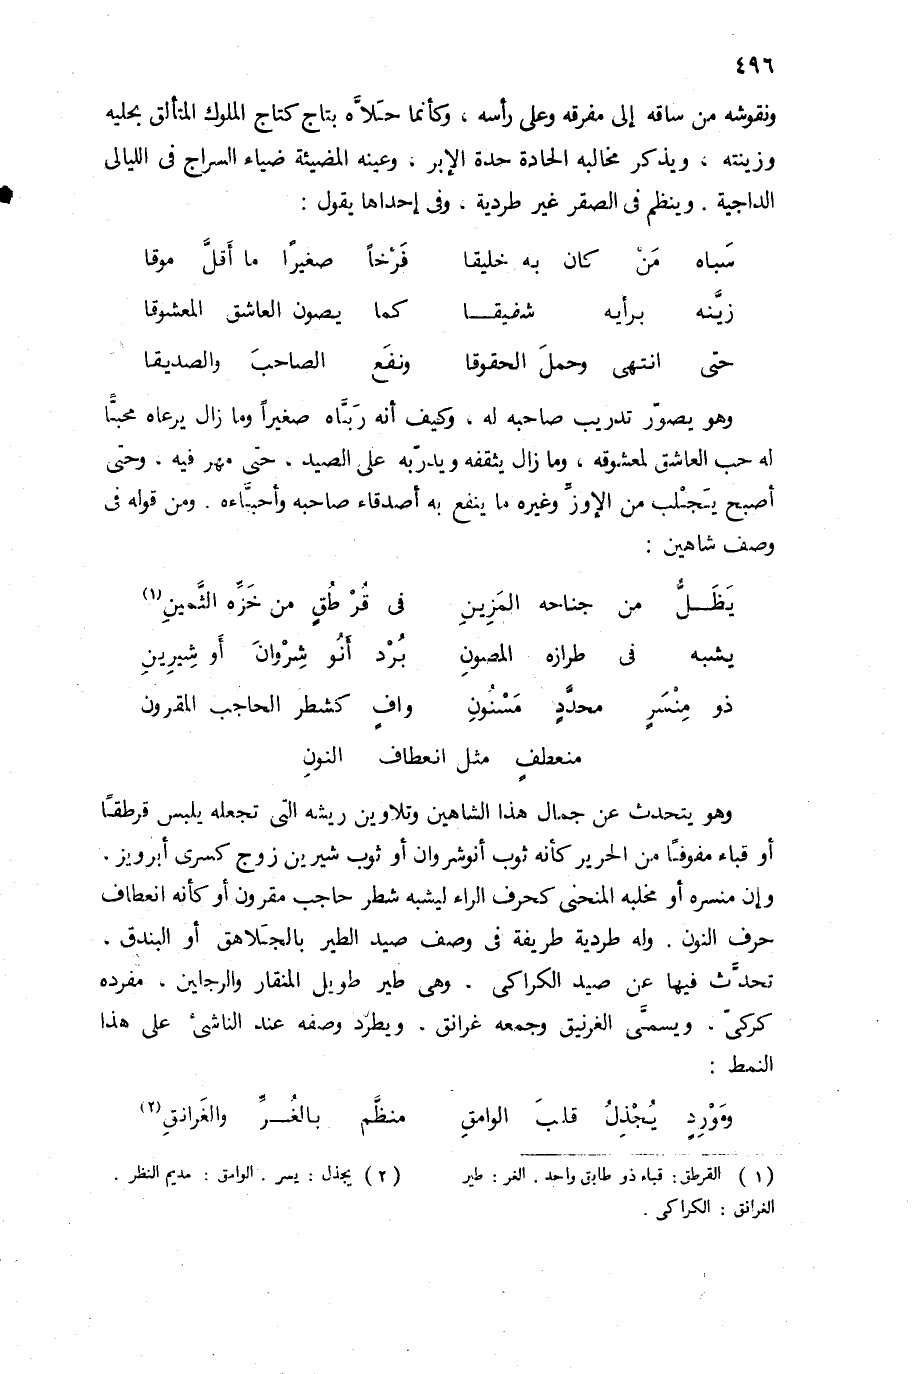 ٤٩٦
ونقوشه من ساقه إلى مفرقه وعلى رأسه ، وكأنما حَلاَّه بتاج كتاج الملوك المتألق بحليه
وزينته ، ويذكر مخالبه الحادة حدة الإبر ، وعينه المضيئة ضياء السراج فى الليالى
الداجية . وينظم فى الصقر غير طردية ، وفى إحداها يقول :
سَباه مَنْ كان به خليقا فَرْخاً صغيرًا ما أَقلَّ موقا
زيَّنه برأيه شفيقا كما يصون العاشق المعشوقا
حتى انتهى وحملَ الحقوقا ونفَع الصاحبَ والصديقا
وهو يصوّر تدريب صاحبه له ، وكيف أنه رَبَّاه صغيراً وما زال يرعاه محبًّا
له حب العاشق لمعشوقه ، وما زال يثقفه ويدرّبه على الصيد ، حتى مهر فيه ، وحتى
أصبح يَجْلب من الإوزّ وغيره ما ينفع به أصدقاء صاحبه وأحبَّاءه . ومن قوله فى
وصف شاهين :
يَظَلُّ من جناحه المَزِينِ فى قُرْطُقٍ من خَزِّه الثَّمينِ(١)
يشبه فى طرازه المصونِ بُرْد أَنُو شِرْوانَ أَو شِيرِينِ
ذو مِنْسَرٍ محدَّدٍ مَسْنُونِ وافٍ كشطر الحاجب المقرون
منعطفٍ مثل انعطاف النونِ
وهو يتحدث عن جمال هذا الشاهين وتلاوين ريشه التى تجعله يلبس قرطقًا
أو قباء مفوفًا من الحرير كأنه ثوب أنوشروان أو ثوب شيرين زوج كسرى أبرويز .
وإن منسره أو مخلبه المنحنى كحرف الراء ليشبه شطر حاجب مقرون أو كأنه انعطاف
حرف النون . وله طردية طريفة فى وصف صيد الطير بالجَلاهق أو البندق ،
تحدَّث فيها عن صيد الكراكى . وهى طير طويل المنقار والرجلين ، مفرده
كركىّ . ويسمَّى الغرنيق وجمعه غرانق . ويطرّد وصفه عند الناشئ على هذا
النمط :
ومَوْرِدٍ يُجْذِلُ قلبَ الوامقِ منظَّم بالغُرِّ والغَرانقِ(٢)
(١) القرطق : قباء ذو طابق واحد . الغر : طير
(٢) يجذل : يسر . الوامق : مديم النظر .
الغرانق : الكراكى .